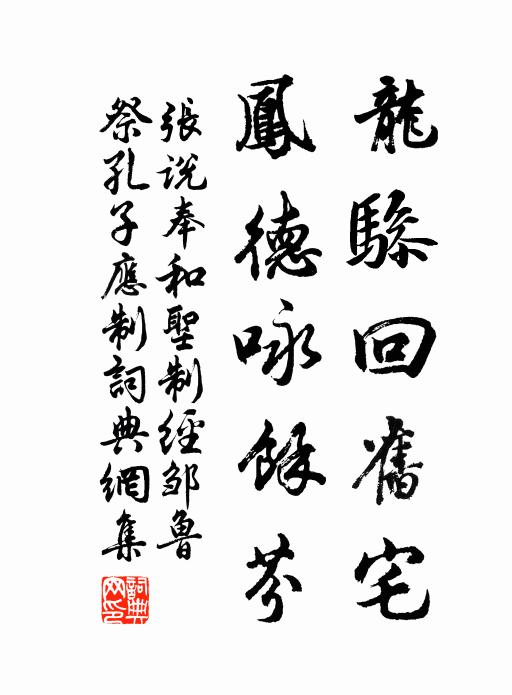 龍驂回舊宅
鳳德咏餘芬
張說奉和聖制經邹魯
祭孔子應制詞典網集
詞典网印